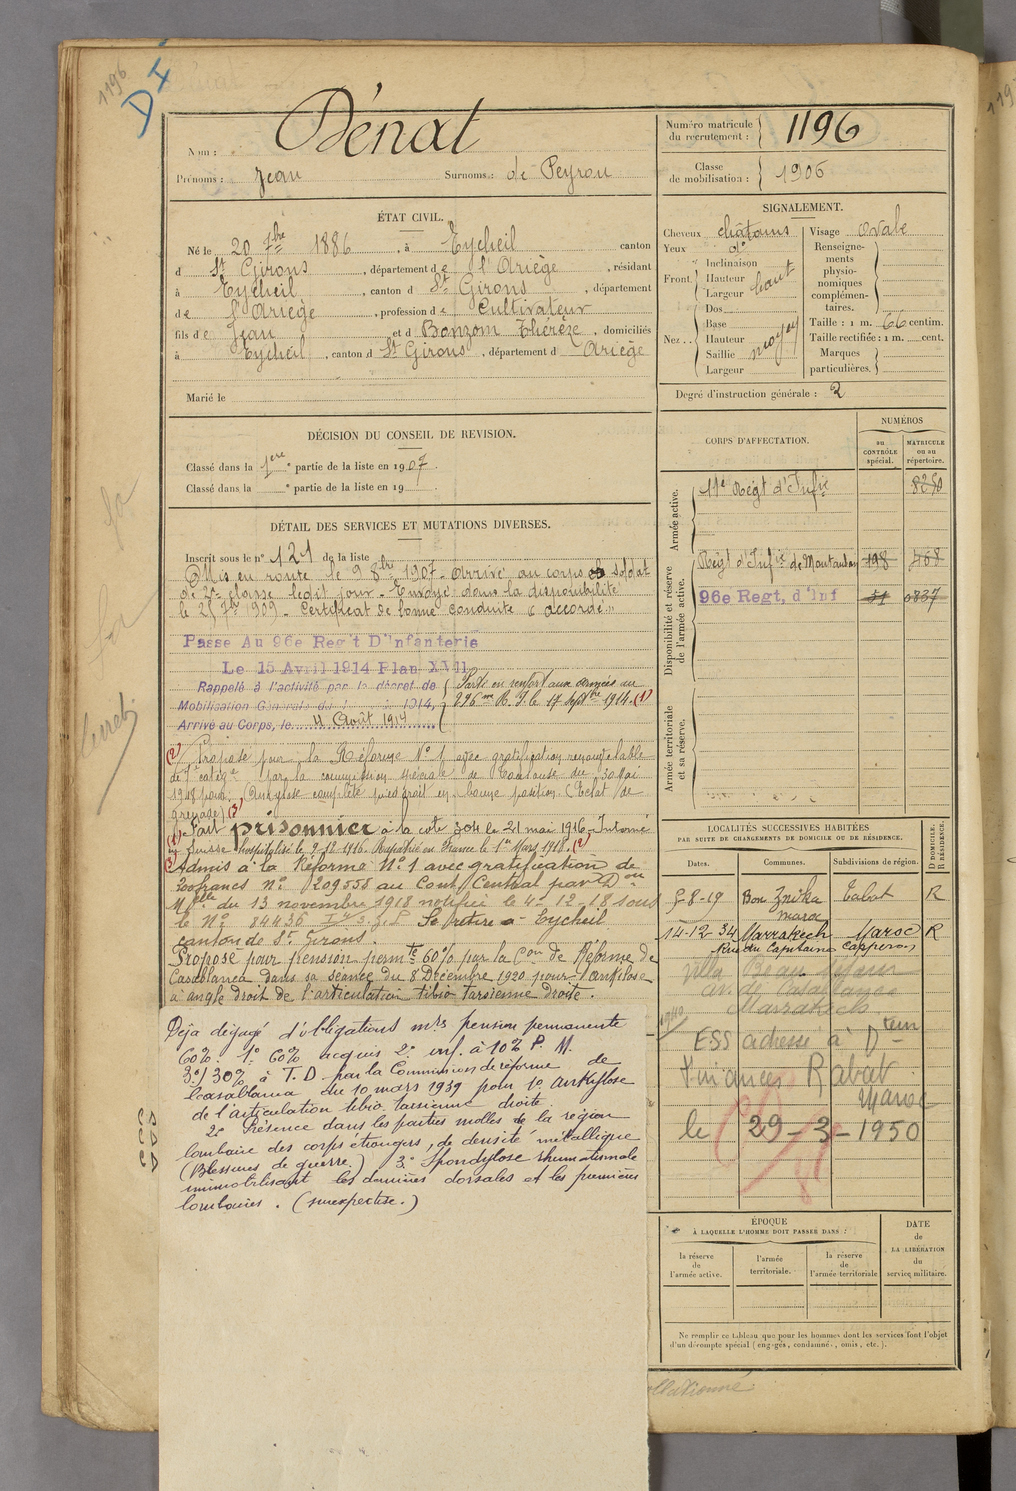 1196
D I
Nom : Dénat
Prénoms : Jean Surnoms : de Peyrou
Numéro matricule du recrutement : 1196
Classe de mobilisation : 1906
ÉTAT CIVIL.
Né le 20 7bre 1886, à Eycheil canton
d St Girons, département de l'Ariège, résidant
à Eycheil, canton d St Girons, département
de l'Ariège, profession de Cultivateur
fils de Jean et d Bonzom Thérèze, domiciliés
à Eycheil, canton d St Girons, département d Ariège
Marié le
SIGNALEMENT.
Cheveux châtains
Yeux do
Front : Inclinaison
Hauteur haut
Largeur
Nez : Dos
Base
Hauteur moyen
Saillie
Largeur
Visage Ovale
Renseignements physionomiques complémentaires.
Taille : 1 m. 66 centim.
Taille rectifiée : 1 m. cent.
Marques particulières.
Degré d'instruction générale : 2
DÉCISION DU CONSEIL DE REVISION.
Classé dans la 1ere partie de la liste en 1907.
Classé dans la e partie de la liste en 19 .
DÉTAIL DES SERVICES ET MUTATIONS DIVERSES.
Inscrit sous le no 121 de la liste
Mis en route le 9 8bre 1907 - Arrivé au corps et soldat
de 2e classe ledit jour - Envoyé dans la disponibilité
le 25 7bre 1909 - Certificat de bonne conduite "accordé"
Passe Au 96e Regt D'Infanterie
Le 15 Avril 1914 Plan XVII
Rappelé à l'activité par le décret de
Mobilisation Générale du 1 1914,
Arrivé au Corps, le 4 Août 1914
Parti en renfort aux armées au
296me R. I. le 17 Septbre 1914. (1)
(2) Proposé pour la Réforme No 1 avec gratification renouvelable
de 7e catége par la commission spéciale de Toulouse du 30 Mai
1918 pour: Ankylose complète pied droit en bonne position (Eclat de
grenade) (3)
(1) Fait prisonnier à la cote 304 le 21 mai 1916 - Interné
en Suisse hospitalisé le 9-12-1916. Rapatrié en France le 1er Mars 1918. (2)
(3) Admis à la Réforme No 1 avec gratification de
200 francs no 209555 au Cont. Central par Don
Mlle du 13 novembre 1918 notifiée le 4-12-18 sous
le No 84436 Se retire à Eycheil
canton de St Girons.
Proposé pour pension permte 60% par la Con de Réforme de
Casablanca dans sa séance du 8 Décembre 1920 pour ankilose
à angle droit de l'articulation tibio tarsienne droite.
Déja dégagé d'obligations mres pension permanente
60%. 1o 60% acquis 2o inf. à 10% P. M.
3o) 30% à T. D par la Commission de réforme de
Casablanca du 10 mars 1939 pour 1o ankylose
de l'articulation tibio-tarsienne droite
2o Présence dans les parties molles de la région
lombaire des corps étrangers, de densité métallique
(Blessures de guerre.) 3o Spondylose rhumatismale
immobilisant les dernières dorsales et les premières
lombaires. (surexpertise.)
CORPS D'AFFECTATION.
NUMÉROS
au CONTRÔLE spécial.
MATRICULE ou au répertoire.
Armée active.
11e Régt d'Infie 8250
Disponibilité et réserve de l'armée active.
Régt d'Infie de Montauban 198 468
96e Regt, d'Inf 51 0837
Armée territoriale et sa réserve.
LOCALITÉS SUCCESSIVES HABITÉES
PAR SUITE DE CHANGEMENTS DE DOMICILE OU DE RÉSIDENCE.
Dates. Communes. Subdivisions de région. D DOMICILE. R RÉSIDENCE.
5-8-19 Bou Znika Rabat R
Maroc
14-12-34 Marrakech Maroc R
Rue du Capitaine Capperon
Villa Beau Séjour
av. de Casablanca
Marrakech
1940
ESS adressé à Dteur
Finances Rabat
Maroc
le 29-3-1950
ÉPOQUE
À LAQUELLE L'HOMME DOIT PASSER DANS :
la réserve de l'armée active.
l'armée territoriale.
la réserve de l'armée territoriale
DATE de LA LIBÉRATION du service militaire.
Ne remplir ce tableau que pour les hommes dont les services font l'objet
d'un décompte spécial (engagés, condamnés, omis, etc.).